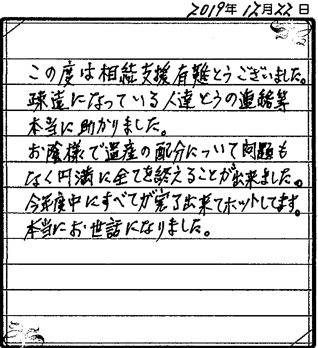 2019年12月22日
この度は相続支援有難とうございました。
疎遠になっている人達とうの連絡等
本当に助かりました。
お陰様で遺産の配分について問題も
なく円満に全てを終えることが出来ました。
今年度中にすべてが完了出来てホットしてます。
本当にお世話になりました。